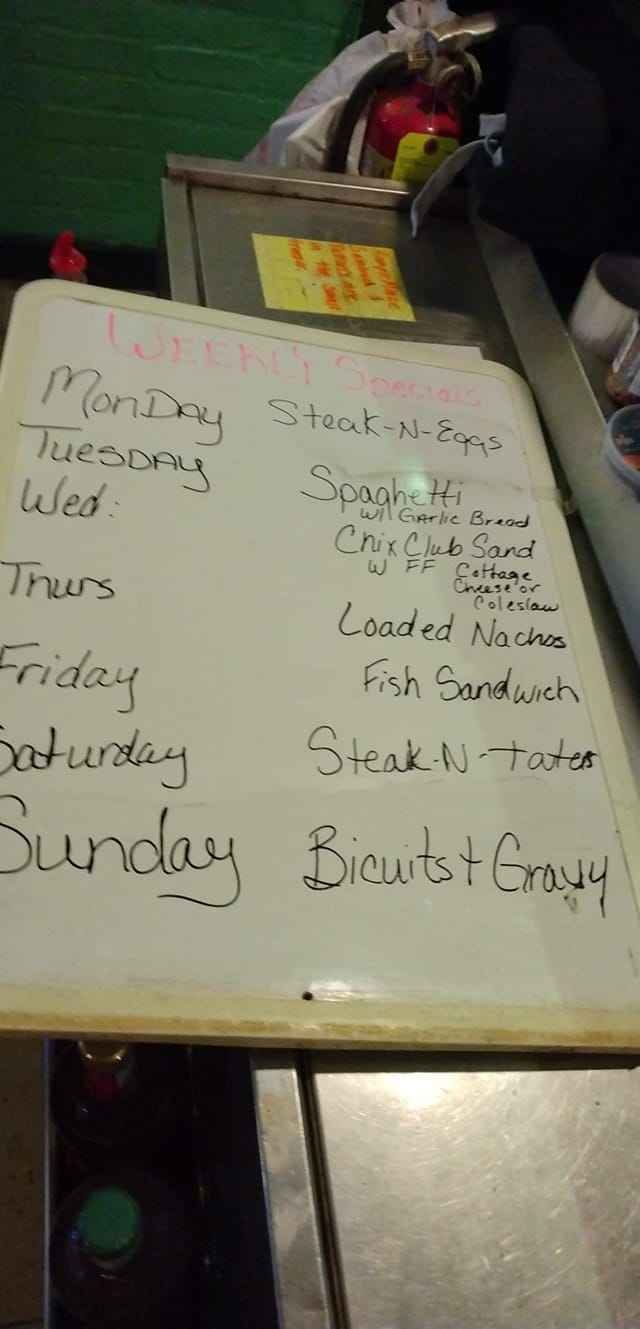 WEEKLY Specials
MonDay Steak-N-Eggs
TuesDAY Spaghetti
w/ GArlic Bread
Wed: Chix Club Sand
w FF Cottage
Cheese or
Coleslaw
Thurs Loaded Nachos
Friday Fish Sandwich
Saturday Steak-N-tater
Sunday Bicuits + Gravy